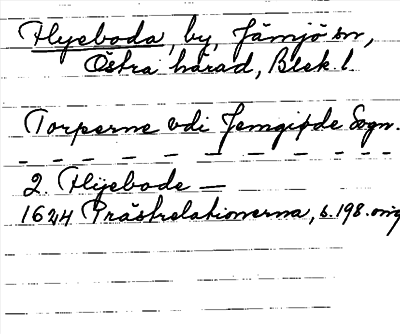 Flyeboda, by, Jämjö sn,
Östra härad, Blek. l.
Torperne vdi Jemgiøde Sogn.
- - - - - - - - - - - - -
2. Flÿebode —
1624 Prästrelationerna, s. 198. orig